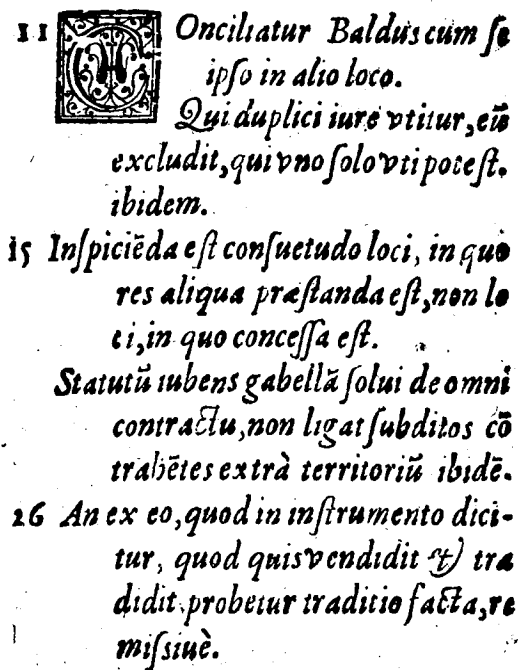 11 COnciliatur Baldus cum ſe
ipſo in alio loco.
Qui duplici iure vtitur, eū
excludit, qui vno ſolo vti poteſt.
ibidem.
15 Inſpiciēda eſt conſuetudo loci, in quo
res aliqua præſtanda eſt, non lo
ci, in quo conceſſa eſt.
Statutū iubens gabellā ſolui de omni
contractu, non ligat ſubditos cō
trahētes extrà territoriū ibidē.
26 An ex eo, quod in inſtrumento dici-
tur, quod quis vendidit & tra
didit probetur traditio facta, re
miſsiuè.